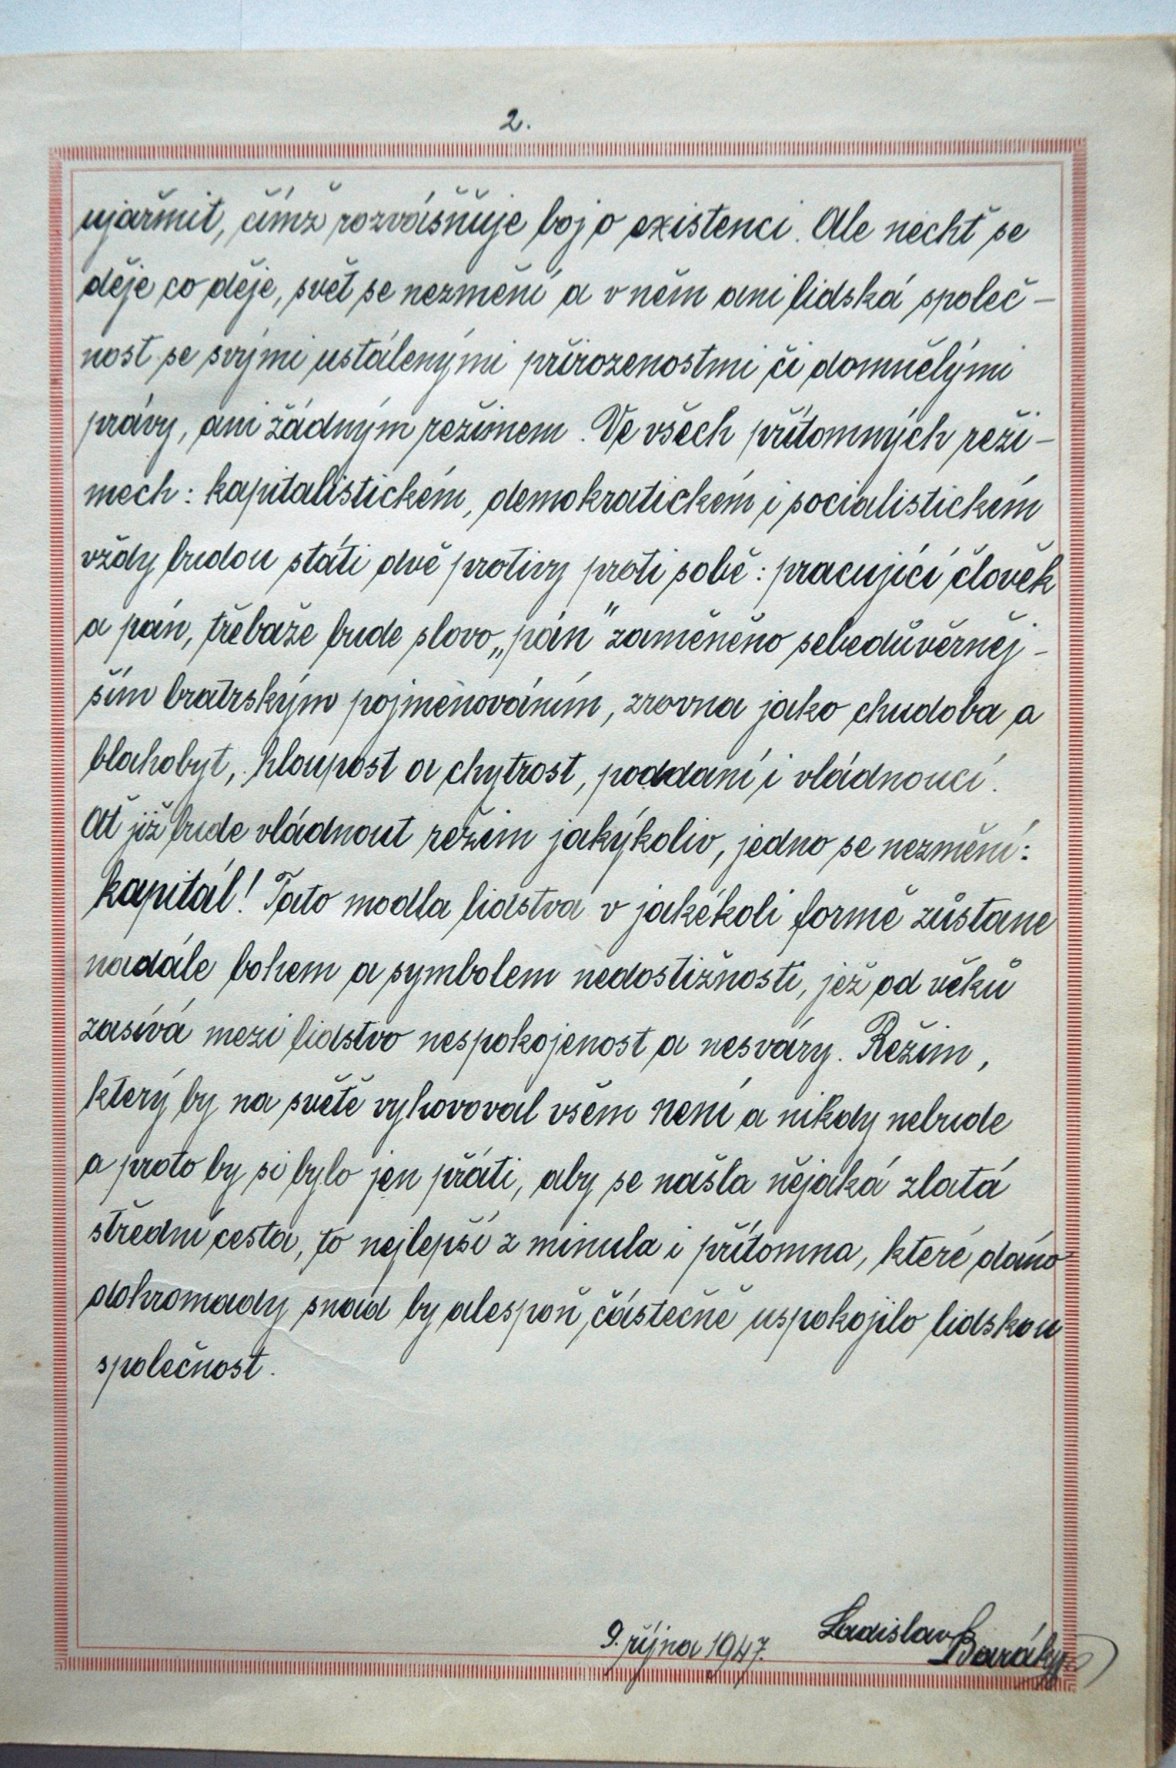 2.
ujařmit, čímž rozvášňuje boj o existenci. Ale nechť se
děje co děje, svět se nezmění a v něm ani lidská společ-
nost se svými ustálenými přirozenostmi či domnělými
právy, ani žádným režimem. Ve všech přítomných reži-
mech: kapitalistickém, demokratickém i socialistickém
vždy budou státi dvě protivy proti sobě: pracující člověk
a pán, třebaže bude slovo „pán" zaměněno sebedůvěrněj-
ším bratrským pojmenováním, zrovna jako chudoba a
blahobyt, hloupost a chytrost, poddaní i vládnoucí.
Ať již bude vládnout režim jakýkoliv, jedno se nezmění:
kapitál! Tato modla lidstva v jakékoli formě zůstane
nadále bohem a symbolem nedostižnosti, jež od věků
zasívá mezi lidstvo nespokojenost a nesváry. Režim,
který by na světě vyhovoval všem není a nikdy nebude
a proto by si bylo jen přáti, aby se našla nějaká zlatá
střední cesta, to nejlepší z minula i přítomna, které dáno
dohromady snad by alespoň částečně uspokojilo lidskou
společnost.
9. října 1947. Ladislav